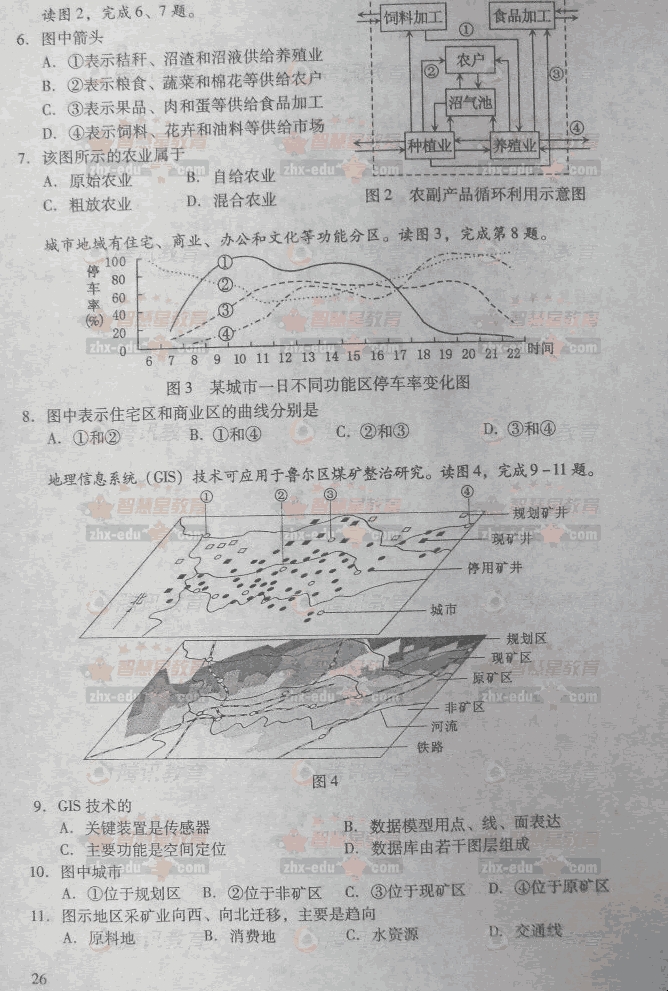 读图2，完成6、7题。
6. 图中箭头
A. ①表示秸秆、沼渣和沼液供给养殖业
B. ②表示粮食、蔬菜和棉花等供给农户
C. ③表示果品、肉和蛋等供给食品加工
D. ④表示饲料、花卉和油料等供给市场
7. 该图所示的农业属于
A. 原始农业 B. 自给农业
C. 粗放农业 D. 混合农业
饲料加工 食品加工
①
农户
② ③
沼气池
④
种植业 养殖业
图2 农副产品循环利用示意图
城市地域有住宅、商业、办公和文化等功能分区。读图3，完成第8题。
停车率(%)
100
80
60
40
20
0
①
②
③
④
6 7 8 9 10 11 12 13 14 15 16 17 18 19 20 21 22 时间
图3 某城市一日不同功能区停车率变化图
8. 图中表示住宅区和商业区的曲线分别是
A. ①和② B. ①和④ C. ②和③ D. ③和④
地理信息系统（GIS）技术可应用于鲁尔区煤矿整治研究。读图4，完成9-11题。
① ② ③ ④
规划矿井
现矿井
停用矿井
城市
北
规划区
现矿区
原矿区
非矿区
河流
铁路
图4
9. GIS技术的
A. 关键装置是传感器 B. 数据模型用点、线、面表达
C. 主要功能是空间定位 D. 数据库由若干图层组成
10. 图中城市
A. ①位于规划区 B. ②位于非矿区 C. ③位于现矿区 D. ④位于原矿区
11. 图示地区采矿业向西、向北迁移，主要是趋向
A. 原料地 B. 消费地 C. 水资源 D. 交通线
26
智慧星教育
zhx-edu com
腾讯教育